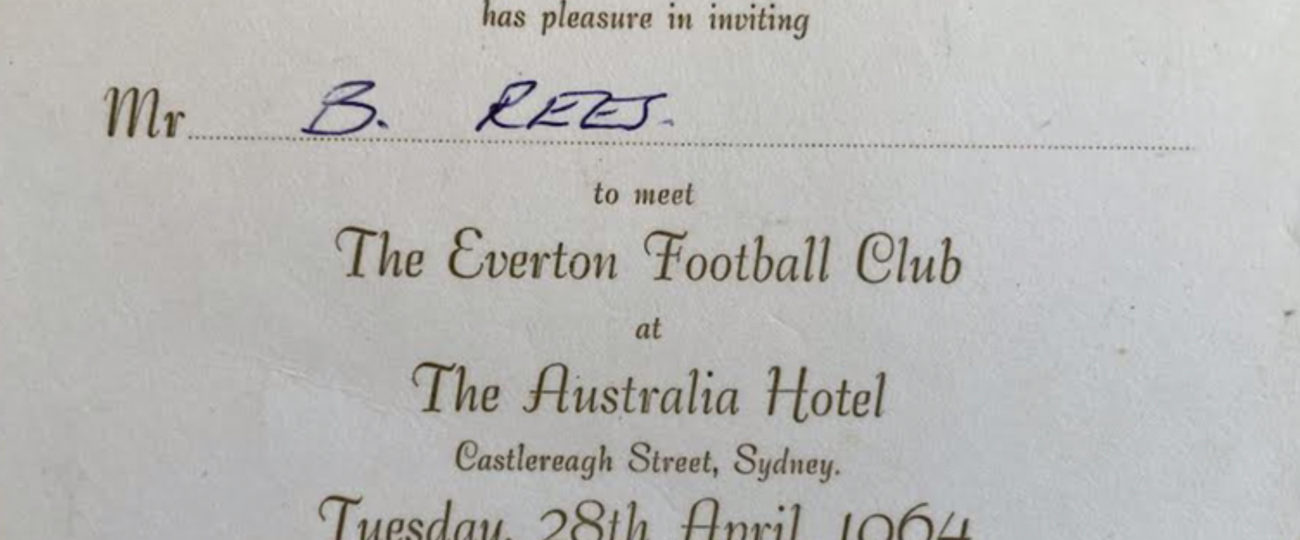 has pleasure in inviting
Mr B. REES.
to meet
The Everton Football Club
at
The Australia Hotel
Castlereagh Street, Sydney.
Tuesday, 28th April 1964